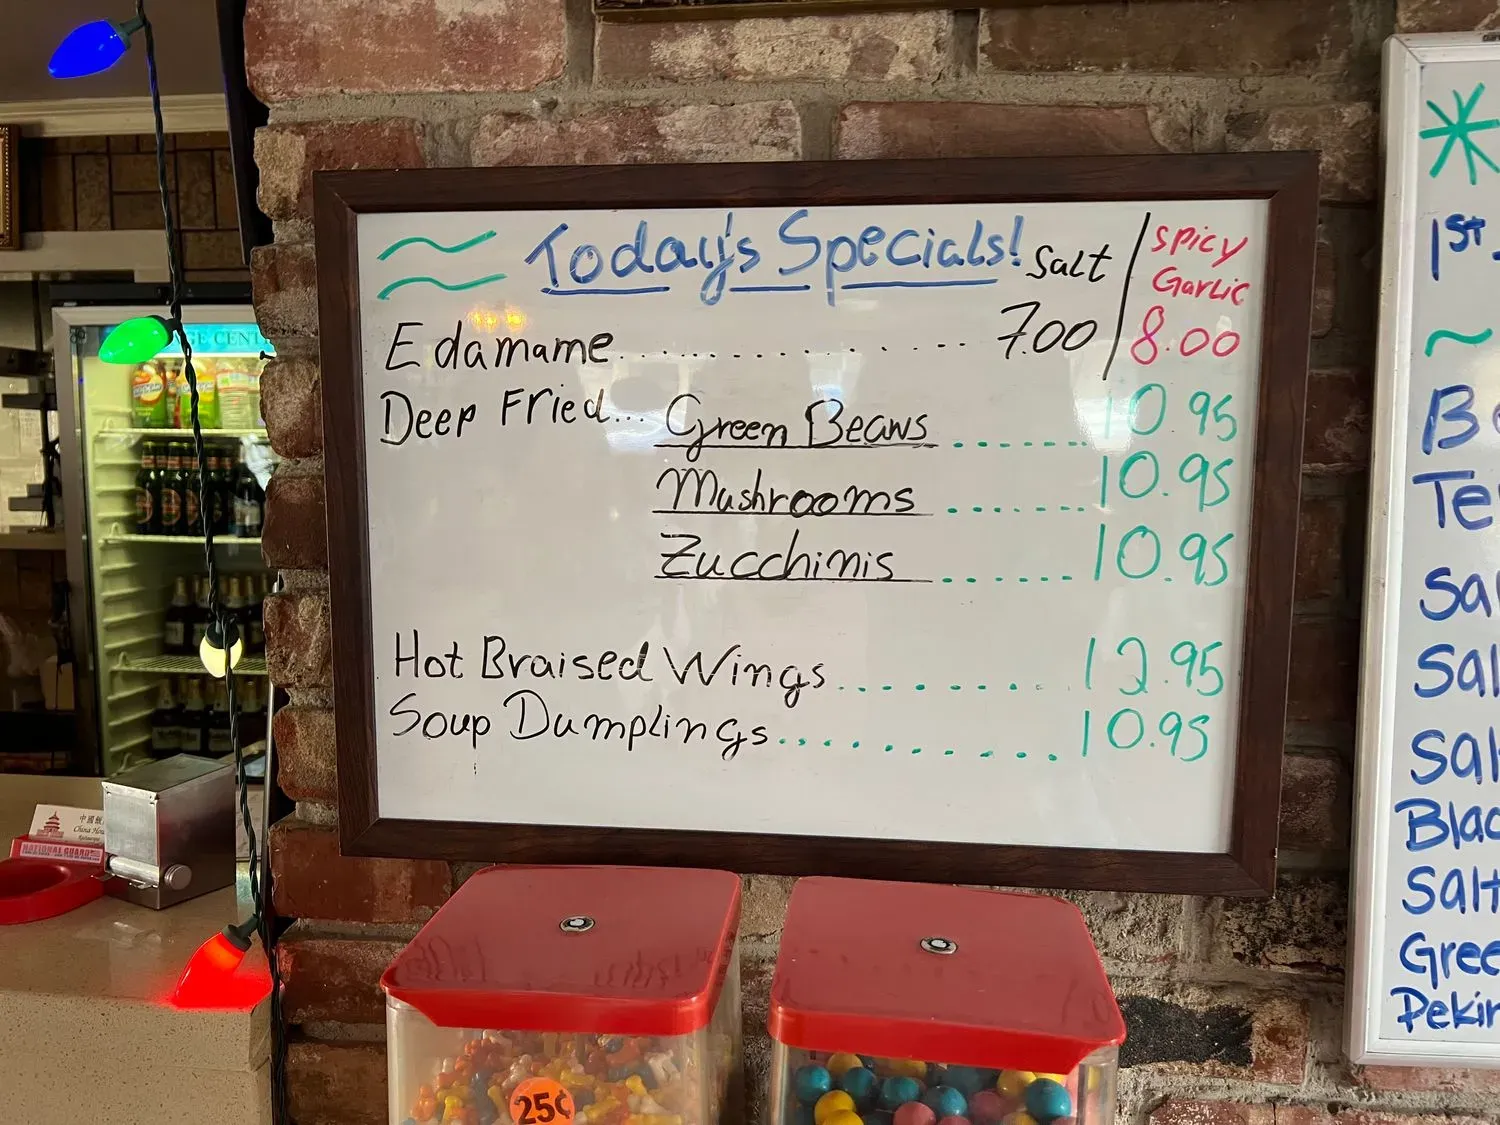 Today's Specials!
Salt / Spicy Garlic
Edamame.............. 7.00 / 8.00
Deep Fried... Green Beans ....... 10.95
Mushrooms ....... 10.95
Zucchinis ....... 10.95
Hot Braised Wings......... 12.95
Soup Dumplings........... 10.95
1st
Be
Te
Sal
Sal
Sal
Blac
Salt
Gree
Pekin
中國
China Hou
NATIONAL GUARD
25¢